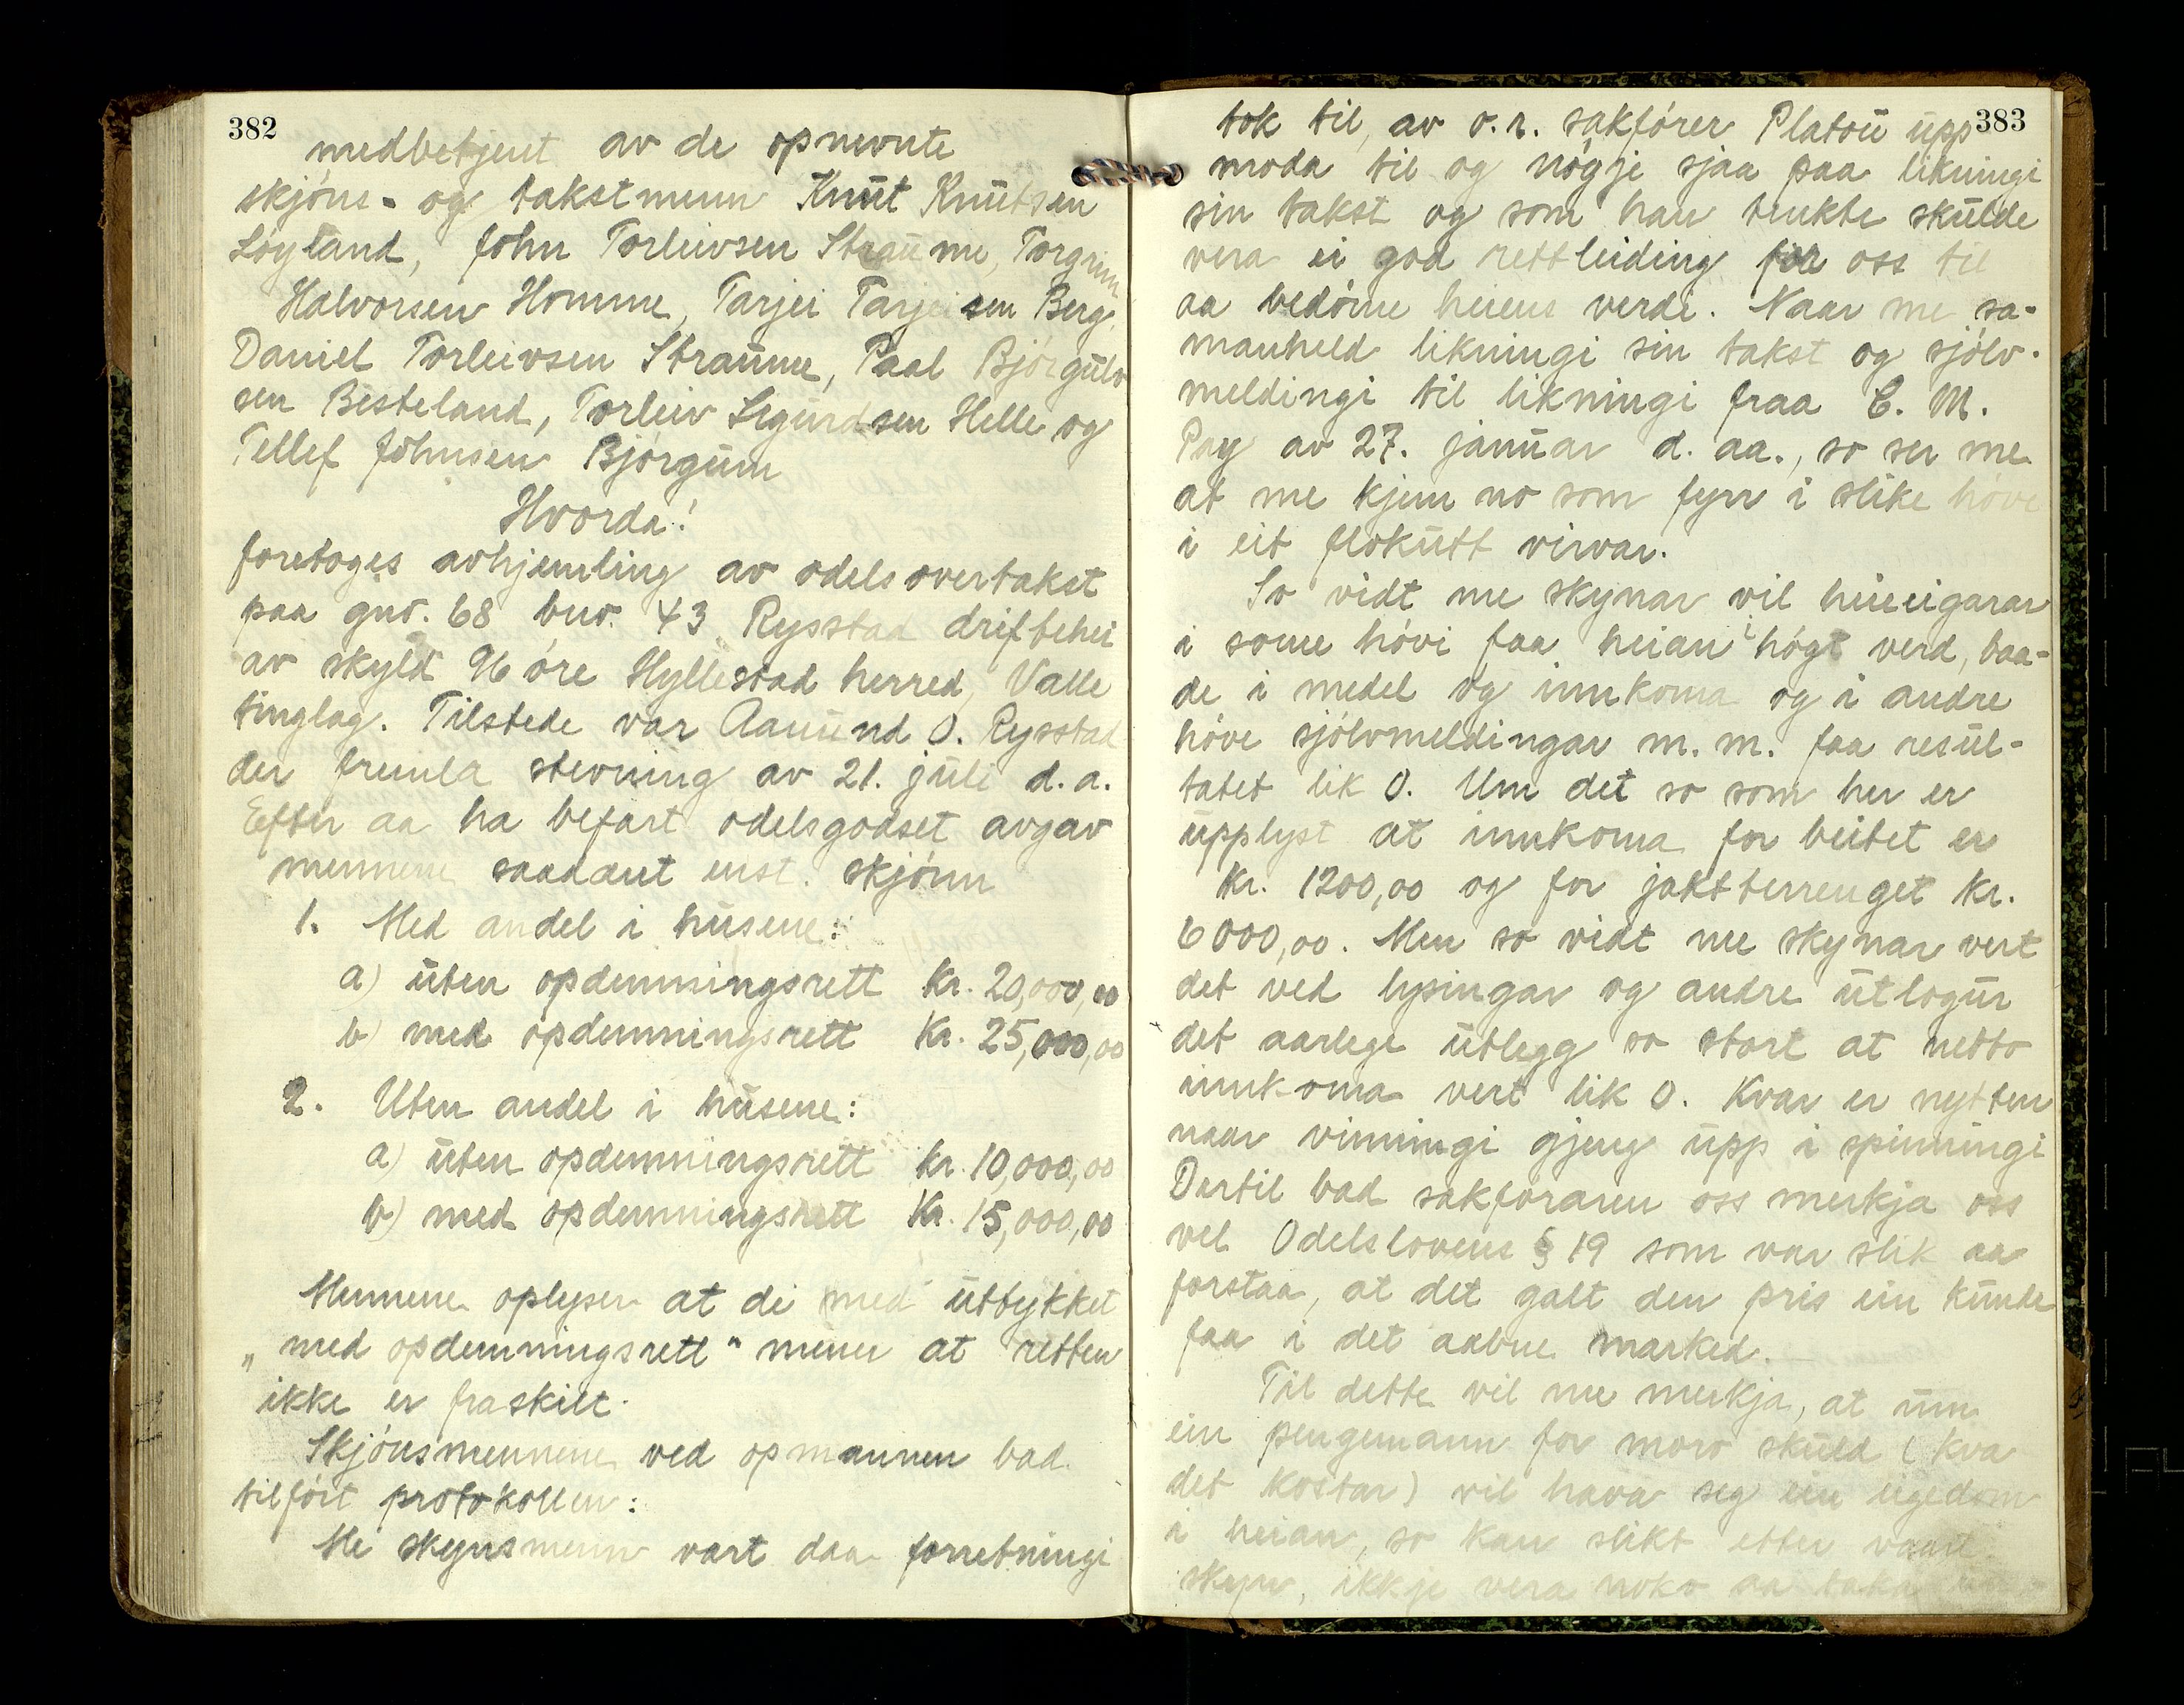 382
medbetjent av de opnevnte
skjøns- og takstmenn Knut Knutsen
Løyland, John Torleivsen Straume, Torgrim
Halvorsen Homme, Tarjei Tarjeisen Berg,
Daniel Torleivsen Straume, Paal Bjørgulv
sen Besteland, Torleiv Sigurdsen Helle og
Tellef Johnsen Bjørgum
Hvorda:
foretoges avhjemling av odelsovertakst
paa gnr. 68 bnr. 43 Rysstad driftehei
av skyld 96 øre Hyllestad herred, Valle
tinglag. Tilstede var Aamund O. Rysstad
der fremla stevning av 21. juli d. a.
Efter aa ha befart odelsgodset avgav
mennene saadant enst. skjønn
1. Med andel i husene:
a) uten opdemningsrett kr. 20,000,00
b) med opdemningsrett kr. 25,000,00
2. Uten andel i husene:
a) uten opdemningsrett kr. 10,000,00
b) med opdemningsrett kr. 15,000,00
Mennene oplyser at de med uttykket
„med opdemningsrett" mener at retten
ikke er fraskilt.
Skjønsmennene ved opmannen bad
tilført protokollen:
Me skynsmenn vart daa forretningi
383
tok til, av o.r. sakfører Platou upp
moda til og nøgje sjaa paa likningi
sin takst og som han tenkte skulde
vera ei god rettleiding for oss til
aa bedøme heiens verde. Naar me sa-
manheld likningi sin takst og sjølv-
meldingi til likningi fraa C. M.
Pay av 27. januar d. aa., so ser me
at me kjem no som fyrr i slike høve
i eit flokutt virvar.
So vidt me skynar vil heieigarar
i some høvi faa heian i høgt verd, baa-
de i medel og innkoma og i andre
høve sjølvmeldingar m. m. faa resul-
tatet lik 0. Um det so som her er
upplyst at innkoma for beitet er
kr. 1200,00 og for jaktterrenget kr.
6000,00. Men so vidt me skynar vert
det ved lysingar og andre utlogur
det aarlege utlegg so stort at netto
innkoma vert lik 0. Kvar er nytten
naar vinningi gjeng upp i spinningi
Dertil bad sakføraren oss merkja oss
vel Odelslovens § 19 som var slik aa
forstaa, at det galt den pris ein kunde
faa i det aabne marked.
Til dette vil me merkja, at um
ein pengemann for moro skuld (kva
det kostar) vil hava seg ein eigedom
i heian, so kan slikt etter vaart
skyn, ikkje vera noko aa taka